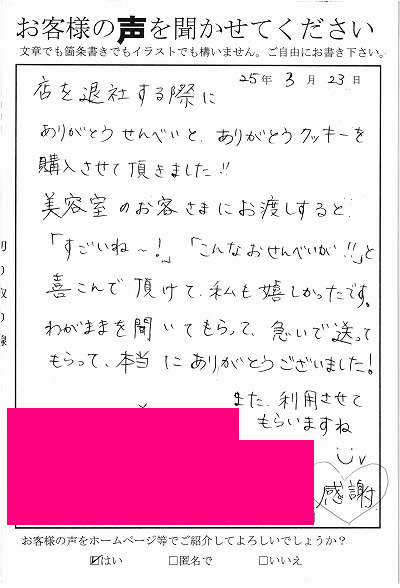 お客様の声を聞かせてください
文章でも箇条書きでもイラストでも構いません。ご自由にお書き下さい。
25年 3月 23日
店を退社する際に
ありがとうせんべいと、ありがとうクッキーを
購入させて頂きました!!
美容室のお客さまにお渡しすると、
「すごいね〜!」「こんなおせんべいが!!」と
喜こんで頂けて、私も嬉しかったです。
わがままを聞いてもらって、急いで送って
もらって、本当にありがとうございました!
また、利用させて
もらいますね
感謝
お客様の声をホームページ等でご紹介してよろしいでしょうか?
☑はい □匿名で □いいえ